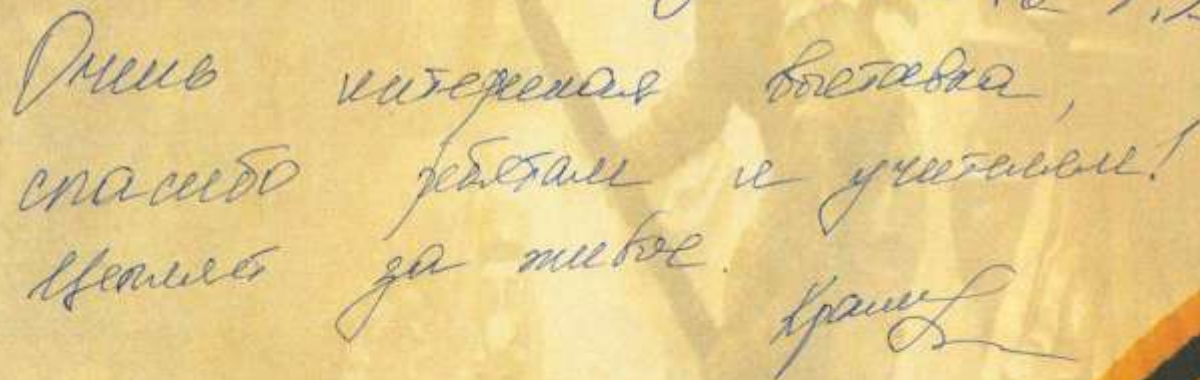 Очень интересная выставка,
спасибо ребятам и учителям!
Цепляет за живое.